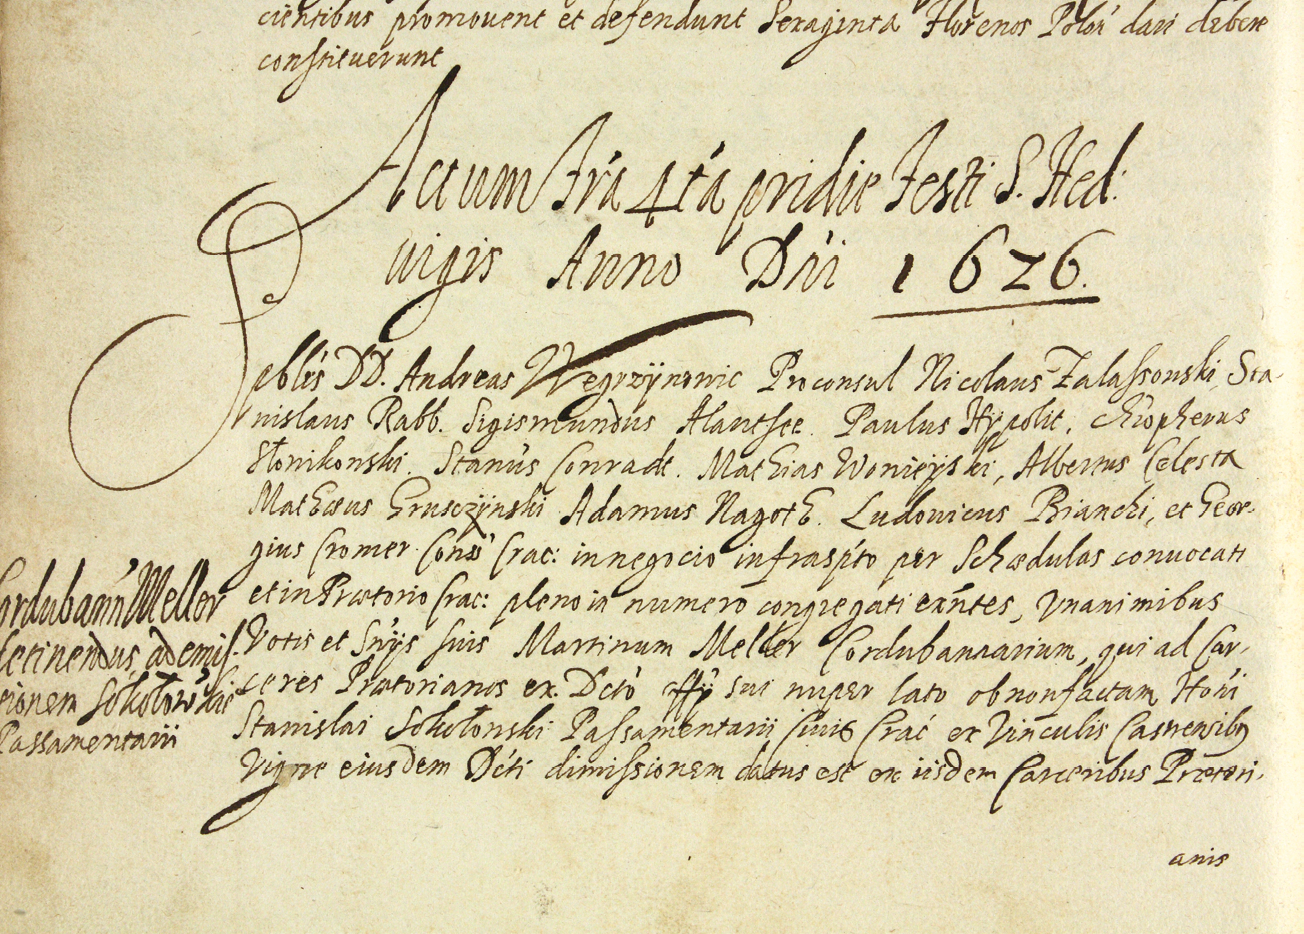 cientibus promovent et defendunt Sexaginta Florenos Polon dari debere
constituerunt
Actum Fr̃a 4ta pridie Festi S. Hed:
uigis Anno Dni 1626.
Spbles DD. Andreas Węgrzÿnowic Proconsul Nicolaus Zalassowski, Sta-
nislaus Rabb. Sigismundus Alantsee. Paulus Hÿpolit, Chrõpherus
Słonikowski. Stanũs Conradt. Mathias Woniejski, Albertus Celesta
Mathæus Grusczÿnski Adamus Nagoth. Ludovicus Bianchi, et Geor-
gius Cromer. Conš Crac: in negocio infrasp̃to per Schædulas convocati
et in Prætorio Crac: pleno in numero congregati exñtes, Vnanimibus
Votis et Sñijs suis Martinum Meller Cordubanarium, qui ad Car-
ceres Prætorianos ex Dcto sui nuper lato ob non factam Hon̄i
Stanislai Sokołowski Passamentarii Civis Crac̃ ex Vinculis Castrensibꝫ
Vigore eiusdem Dc̃ti dimissionem datus est ex iisdem Carceribus Prætori-
anis
Cordubanñ Meller
detinendus ad emis-
sionem Sokołowski
Passamentarii